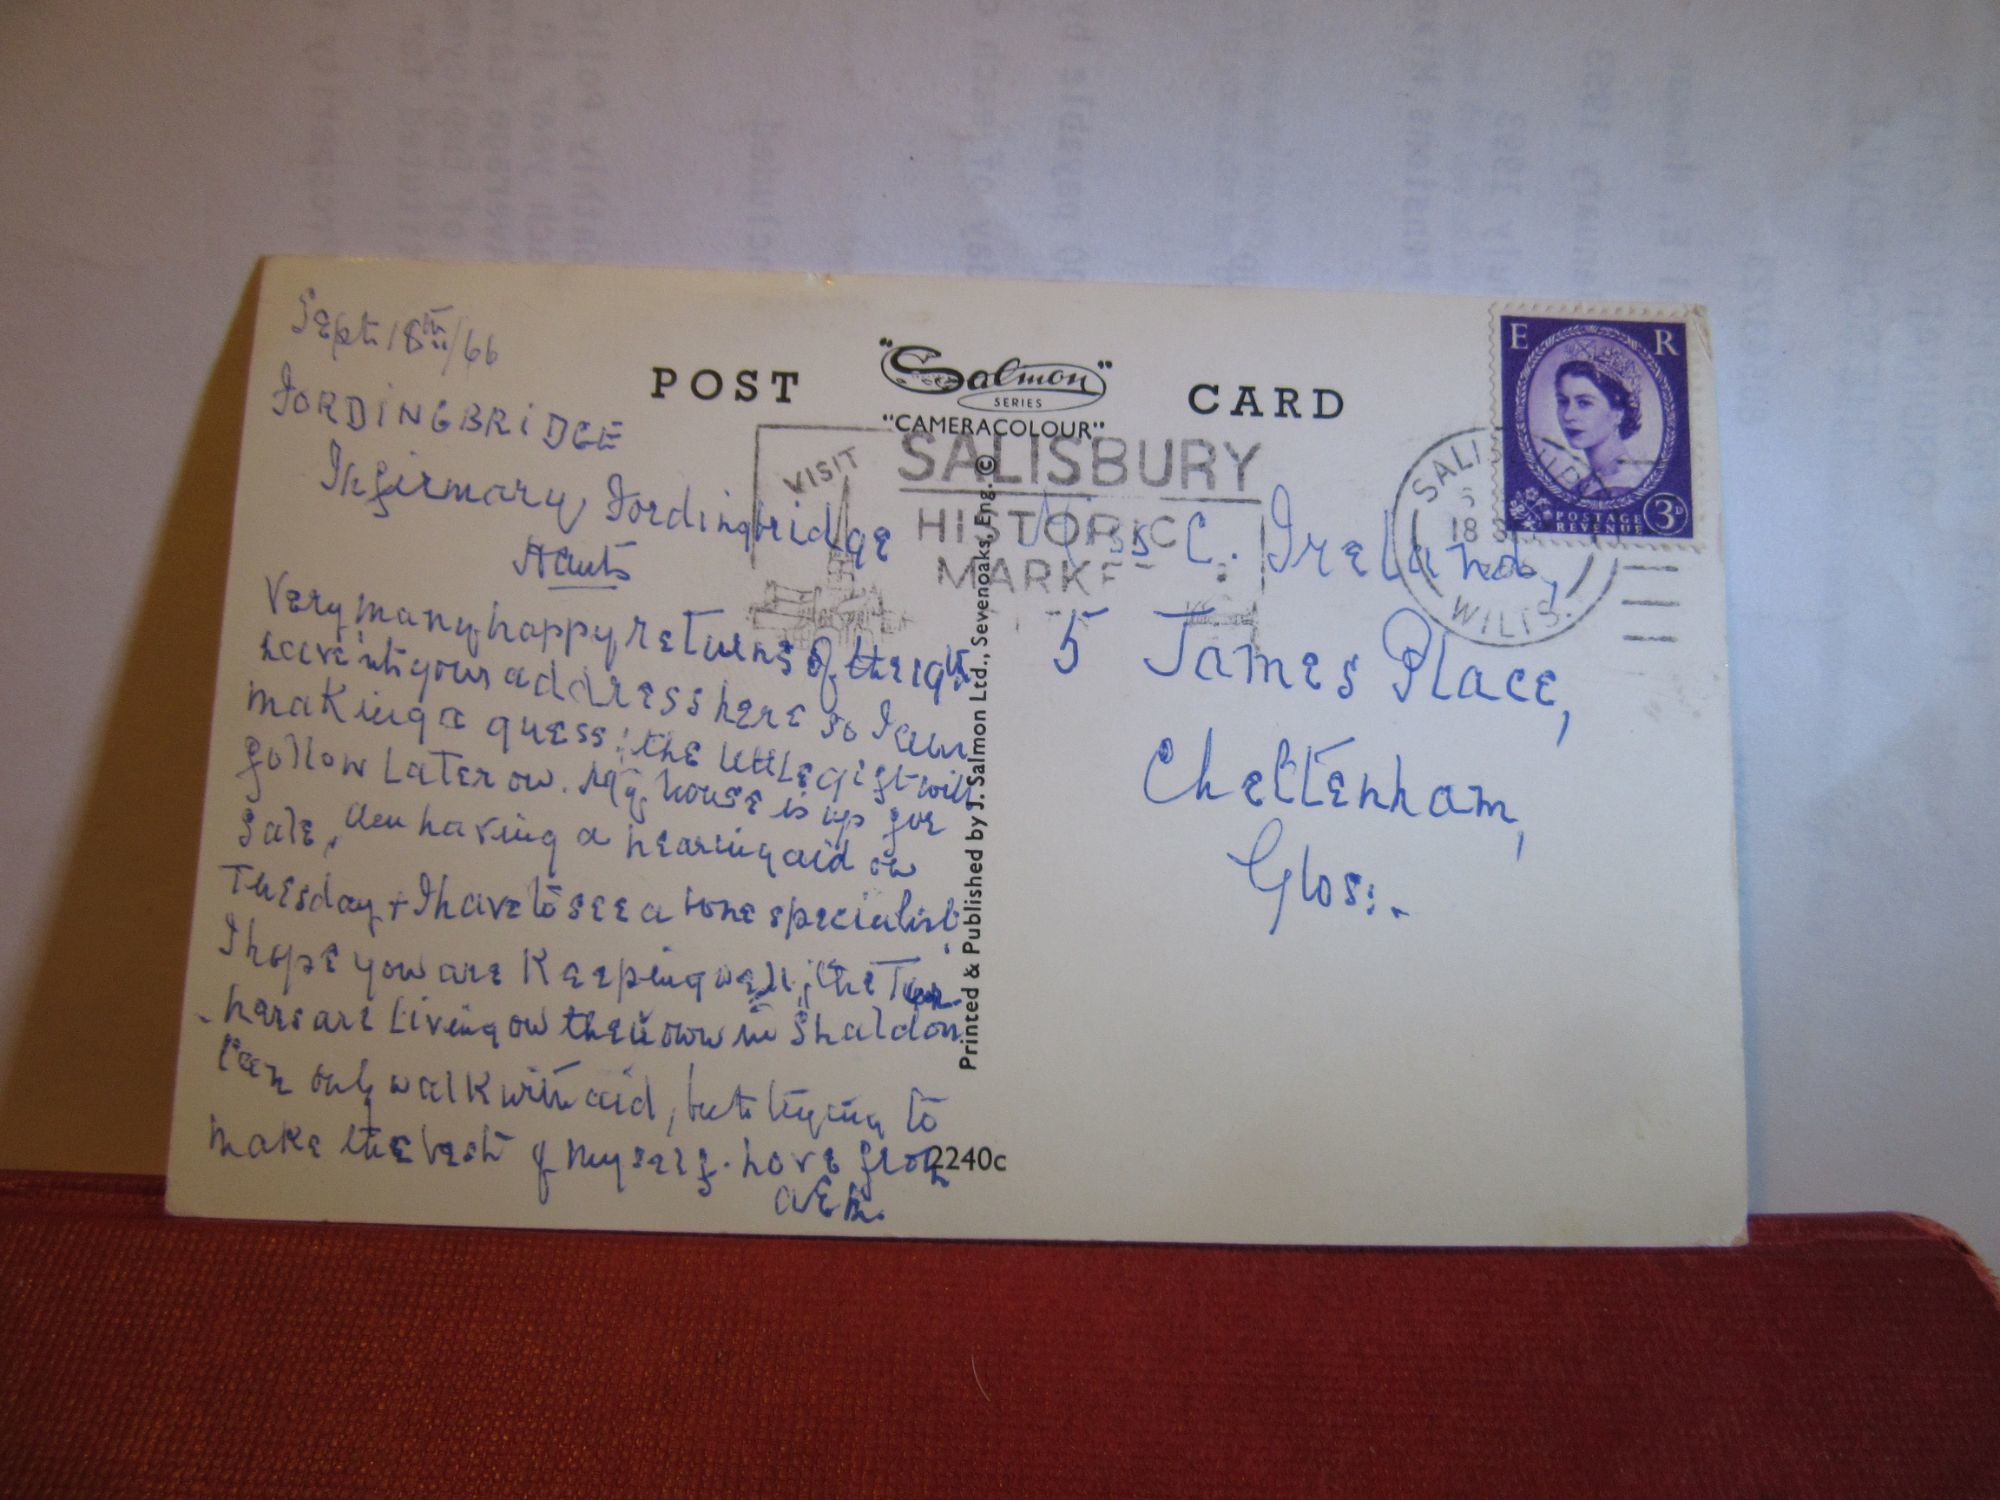 Sept. 18th/66
FORDINGBRIDGE
Infirmary Fordingbridge
Hants
Very many happy returns of the 19th.
haven't your address here so I am
making a guess: the little gift will
follow later on. My house is up for
sale, am having a hearing aid on
Tuesday + I have to see a bone specialist.
I hope you are keeping well; the Tur-
-ners are living on their own in Shaldon
I can only walk with aid, but trying to
make the best of myself. Love from
AEB.
POST CARD
"Salmon"
SERIES
"CAMERACOLOUR"
VISIT
SALISBURY
HISTORIC
MARKET
Printed & Published by J. Salmon Ltd., Sevenoaks, Eng. ©
2240c
E R
POSTAGE
REVENUE
3D
SALISBURY
18
WILTS.
Miss C. Ireland,
5 James Place,
Cheltenham,
Glos:.